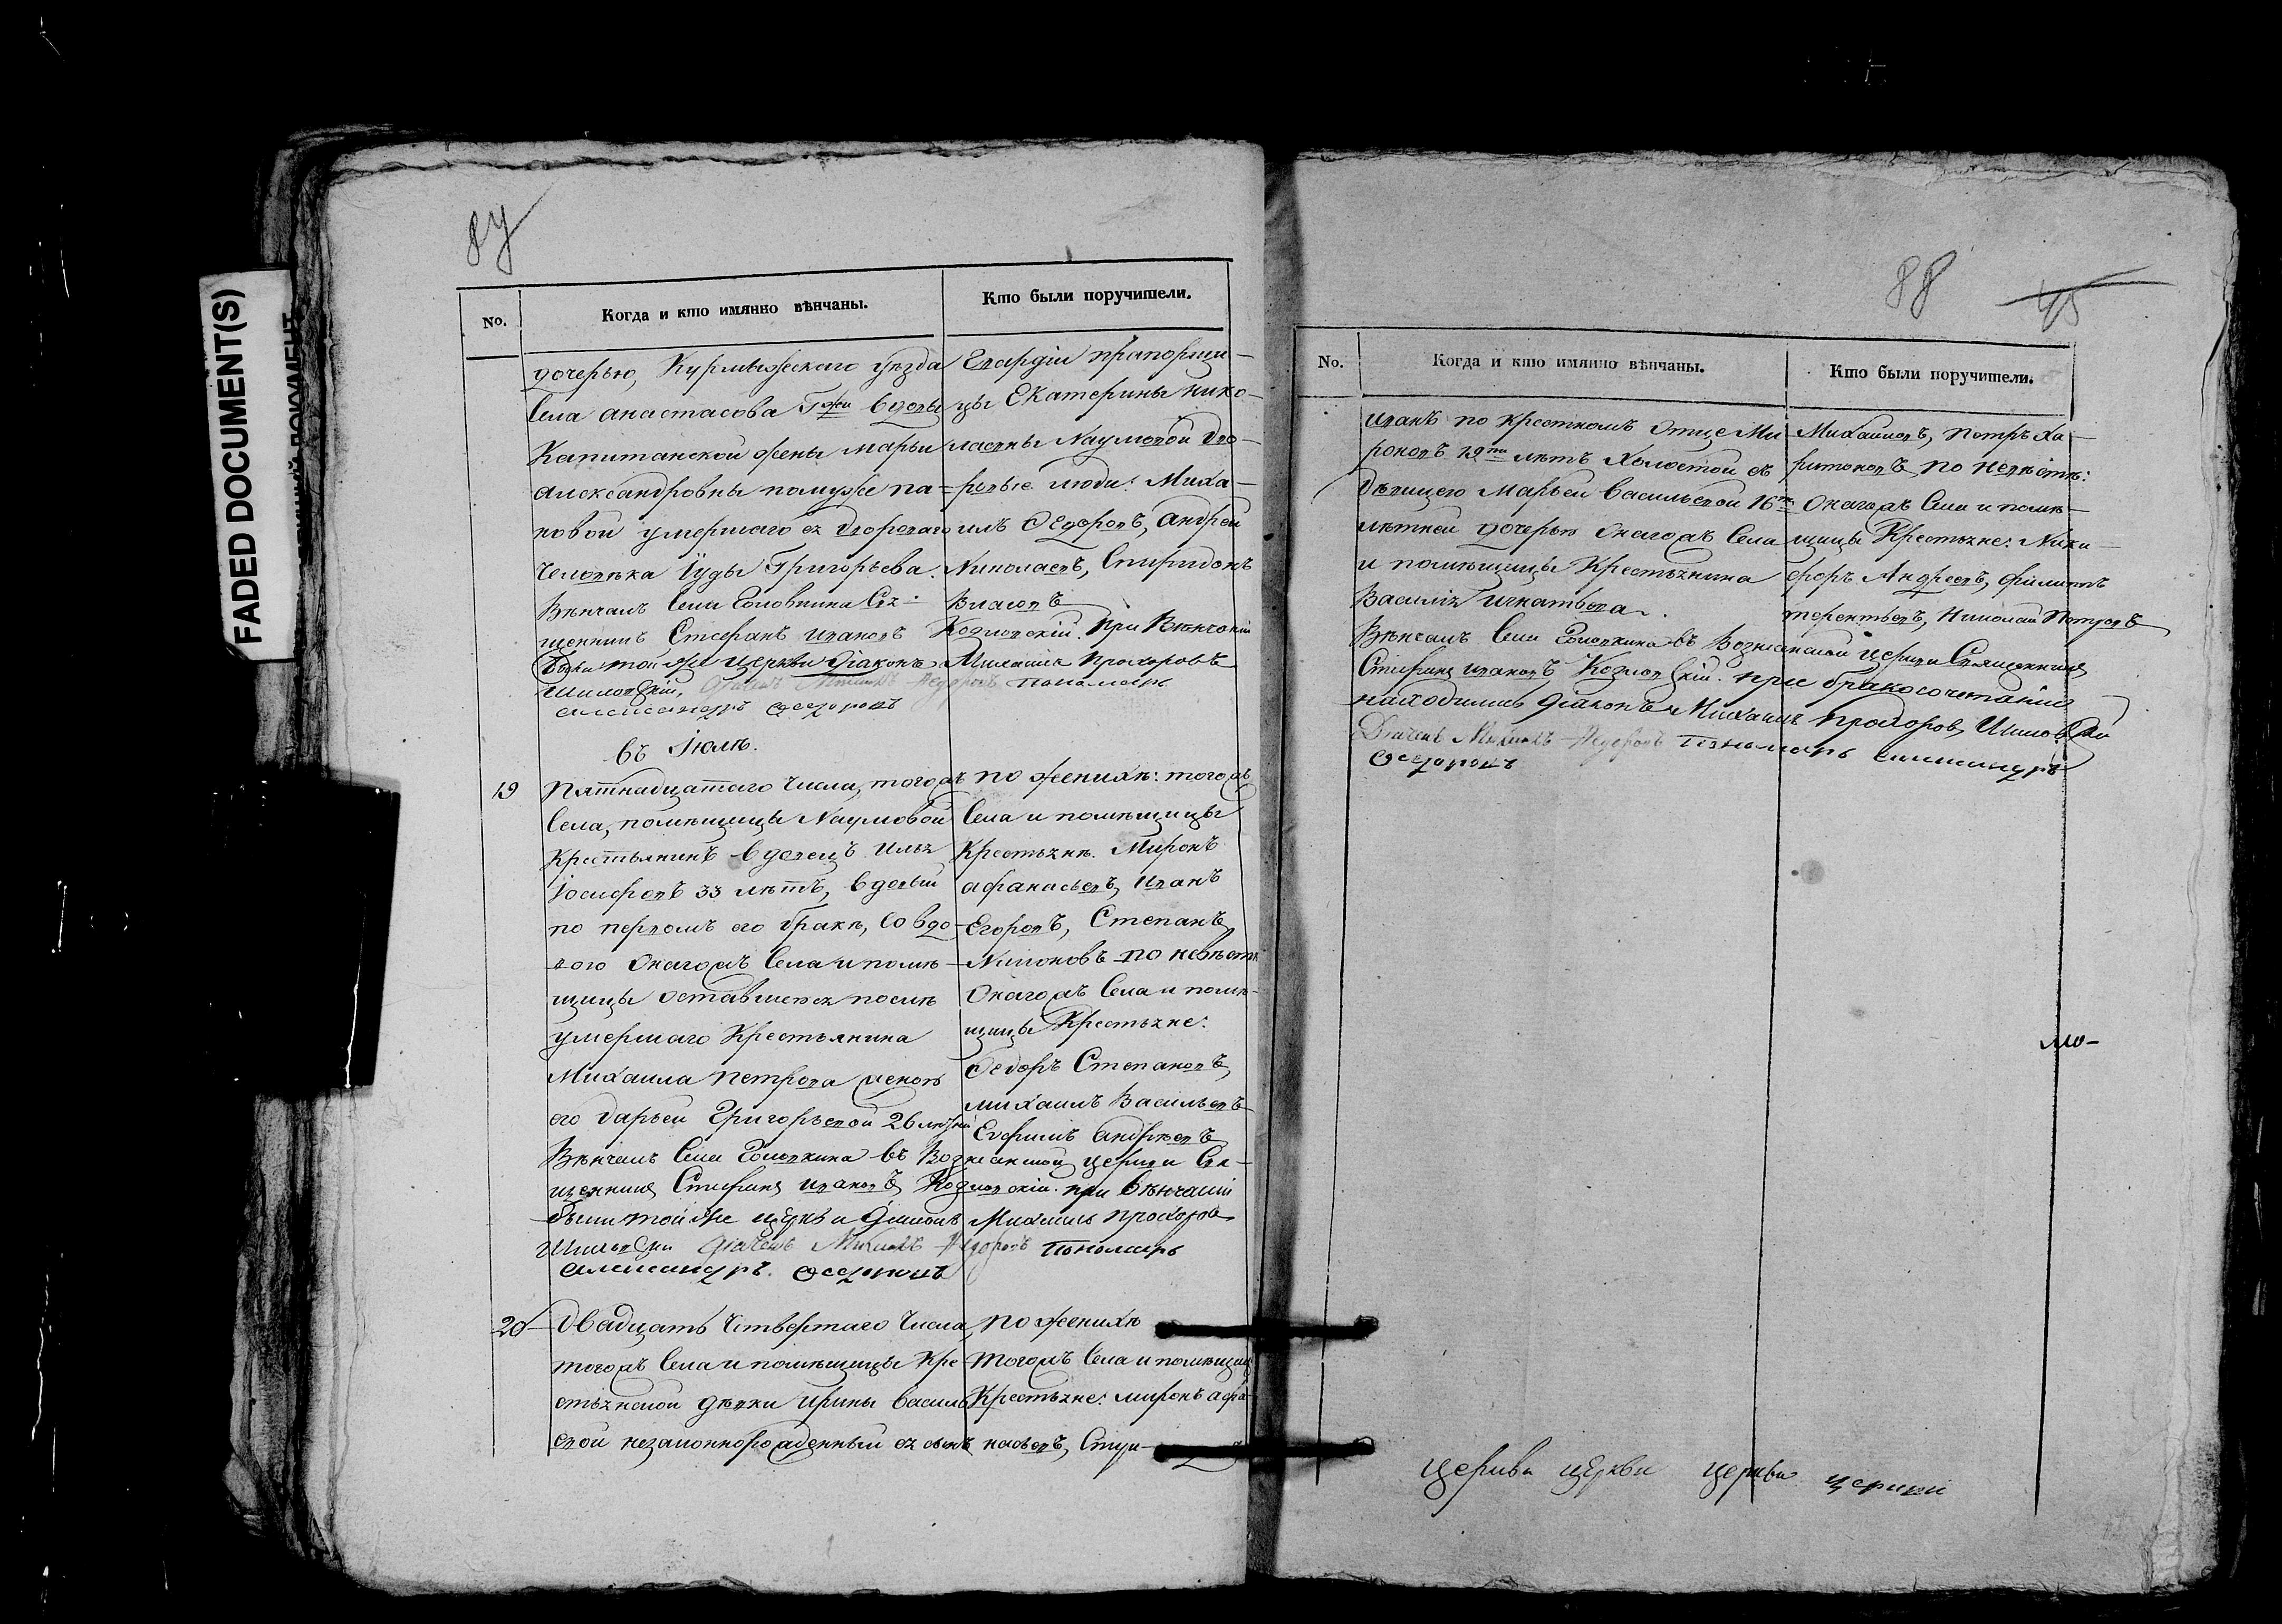 FADED DOCUMENT(S)
87
No.
Когда и кто имянно вѣнчаны.
Кто были поручители.
дочерью, Курмышскаго уѣзда
Села анастасова Гжи вдовы
Капитанской жены марьи
александровны помуже па-
новой умершаго ея дворового
человѣка Іуды Григорьева.
Вѣнчалъ Села Головкина Свя-
щенникъ Стефанъ ивановъ Козловскій. При Вѣнчаніи
были той же церкви діаконъ Михаилъ Прохоровъ
Шиловскій, дьячекъ Михаилъ Федоровъ пономарь
александръ Ѳедоровъ
Гвардіи прапорщи-
цы Екатерины нико-
лаевны Наумовой дво-
ровые люди: Миха-
илъ Ѳедоровъ, андрей
Николаевъ, Спиридонъ
Власовъ
въ Іюлѣ.
19
Пятнадцатаго числа, тогожъ
Села, помѣщицы Наумовой
Крестьянинъ вдовецъ илья
Іосифовъ 33 лѣтъ, вдовый
по первомъ его бракѣ, со вдо-
вою онагожъ Села и помѣ-
щицы оставшеюся послѣ
умершаго Крестьянина
Михаила петрова женою
его дарьей Григорьевой 26 лѣтней
Вѣнчалъ Села Головкина въ Вознесенской церкви Свя-
щенникъ Стефанъ ивановъ Козловскій. при вѣнчаніи
были той же церкви діаконъ Михаилъ прохоровъ
Шиловскій дьячекъ Михаилъ Федоровъ пономарь
александръ. Ѳедоровъ
по женихѣ: тогожъ
Села и помѣщицы
Крестьяне. Миронъ
афанасьевъ, иванъ
Егоровъ, Степанъ
по невѣстѣ
Онагожъ Села и помѣ-
щицы Крестьяне:
Ѳедоръ Степановъ,
михаилъ Васильевъ
Ефимъ андреевъ
20
двадцать четвертаго числа
тогожъ Села и помѣщицы Кре-
стьянской дѣвки ирины василь-
евой незаконнорожденный ея сынъ
по женихѣ
тогожъ Села и помѣщицы
Крестьяне: миронъ афа-
насьевъ,
88
45
No.
Когда и кто имянно вѣнчаны.
Кто были поручители.
иванъ по крестномъ отцѣ Ми-
роновъ 19ти лѣтъ холостой съ
дѣвицею Марьей васильевой 16ти
лѣтней дочерью онагожъ Села
и помѣщицы Крестьянина
Василья игнатьева.
Вѣнчалъ Села Головкина въ Вознесенской церкви Священникъ
Стефанъ ивановъ Козловскій. при бракосочетаніи
находились діаконъ Михаилъ прохоровъ Шиловскій
Дьячекъ Михаилъ Федоровъ пономарь александръ
Ѳедоровъ
Михайловъ, петръ Ха-
ритоновъ, по невѣстѣ:
онагожъ Села и помѣ-
щицы Крестьяне: Ники-
форъ Андреевъ, филиппъ
терентьевъ, николай Петровъ
мо-
церкви церкви церкви церкви